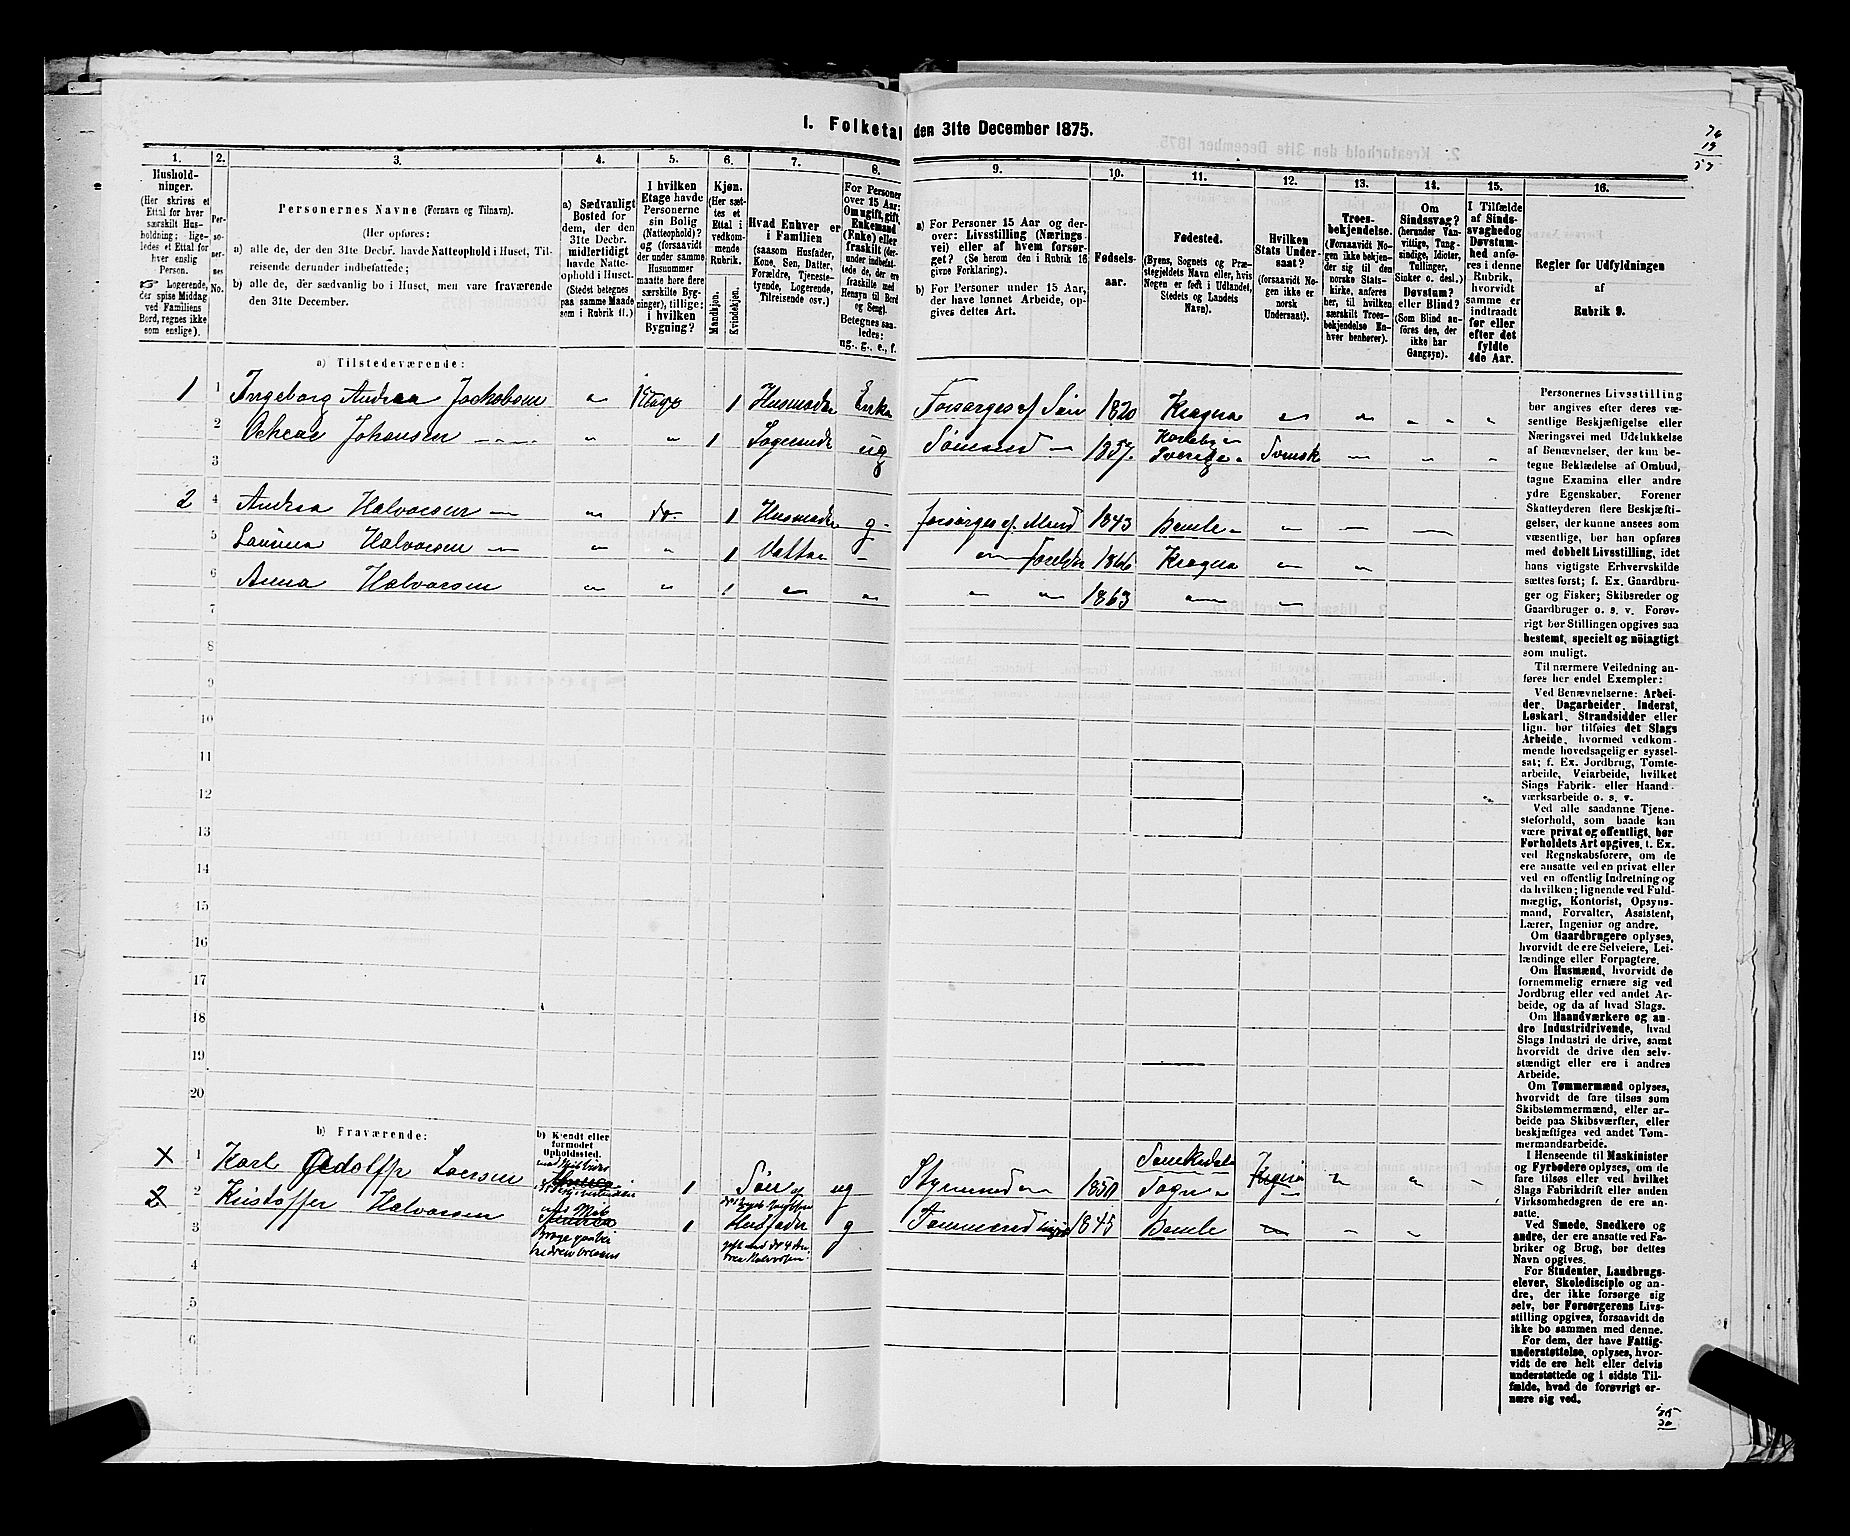 I. Folketal den 31te December 1875.
1.
Hushold-
ninger.
(Her skrives et
Ettal for hver
særskilt Hus-
holdning; lige-
ledes et Ettal for
hver enslig
Person.
Logerende,
der spise Middag
ved Familiens
Bord, regnes ikke
som enslige).
2.
Per-
so-
ner-
nes
No.
3.
Personernes Navne (Fornavn og Tilnavn).
(Her opføres:
a) alle de, der den 31te Decbr. havde Natteophold i Huset, Til-
reisende derunder indbefattede;
b) alle de, der sædvanlig bo i Huset, men vare fraværende
den 31te December.
4.
a) Sædvanligt
Bosted for
dem, der den
31te Decbr.
midlertidigt
havde Natte-
ophold i Huset.
(Stedet betegnes
paa samme Maade
som i Rubrik 11.)
5.
I hvilken
Etage havde
Personerne
sin Bolig
(Natteophold)?
og (forsaavidt
der under samme
Husnummer
maatte høre flere
særskilte Byg-
ninger), tillige:
i hvilken
Bygning?
6.
Kjøn.
(Her sæt-
tes et
Ettal i
vedkom-
mende
Rubrik.
Mandkjøn.
Kvindekjøn.
7.
Hvad Enhver er
i Familien
(saasom Husfader,
Kone, Søn, Datter,
Forældre, Tjeneste-
tyende, Logerende,
Tilreisende osv.)
8.
For Personer
over 15 Aar:
Om ugift, gift,
Enkemand
(Enke) eller
fraskilt (der-
under indbefat-
tede de, der ere
fraskilte med
Hensyn til Bord
og Seng).
Betegnes saa-
ledes:
ug., g., e., f.
9.
a) For Personer 15 Aar og der-
over: Livsstilling (Nærings-
vei) eller af hvem forsør-
get? (Se herom den i Rubrik 16
givne Forklaring).
b) For Personer under 15 Aar,
der have lønnet Arbeide, op-
gives dettes Art.
10.
Fødsels-
aar.
11.
Fødested.
(Byens, Sognets og Præ-
stegjeldets Navn eller, hvis
Nogen er født i Udlandet,
Stedets og Landets
Navn).
12.
Hvilken
Stats Under-
saat?
(forsaavidt No-
gen ikke er
norsk
Undersaat).
13.
Troes-
bekjendelse.
(Forsaavidt No-
gen ikke bekjen-
der sig til den
norske Stats-
kirke, anføres
her, til hvilken
særskilt Troes-
bekjendelse En-
hver henhører).
14.
Om
Sindssvag?
(herunder Van-
vittige, Tung-
sindige, Idioter,
Tullinger,
Sinker o. desl.)
Døvstum?
eller Blind?
(Som Blind an-
føres den, der
ikke har
Gangsyn).
15.
I Tilfælde
af Sinds-
svaghed og
Døvstum-
hed anfø-
res i denne
Rubrik,
hvorvidt
samme er
indtraadt
før eller
efter det
fyldte
4de Aar.
16.
Regler for Udfyldningen
af
Rubrik 9.
a) Tilstedeværende:
1 1 Ingeborg Andrea Jackobsen " 1 Etage 1 Husmoder Enke Forsørges af Søn 1820 Kragerø " " " "
2 Johansen " " 1 Logerende ug Sømand 1857 Sverige Svensk " " "
3
2 4 Andrea Halvorsen " do 1 Husmoder g forsørges af Mand 1843 Bamle " " "
5 Halvorsen " " 1 Datter " " Foreldre 1866 Kragerø " "
6 Anna Halvorsen " " 1 " " " " 1863 " "
7
8
9
10
11
12
13
14
15
16
17
18
19
20
b) Fraværende:
b) Kjendt eller
formodet
Opholdssted.
X 1 Karl Adolff Laersen 1 Søn af ug Styrmand 1850 Sannikedals Sogn " " "
2 2 Kristoffer Halvorsen 1 Husfader g Tømmermand 1845 Bamle " " "
3
4
5
6
Personernes Livsstilling
bør angives efter deres væ-
sentlige Beskjæftigelse eller
Næringsvei med Udelukkelse
af Benævnelser, der kun be-
tegne Beklædelse af Ombud,
tagne Examina eller andre
ydre Egenskaber. Forener
Skatteyderen flere Beskjæfti-
gelser, der kunne ansees som
væsentlige, bør han opføres
med dobbelt Livsstilling, idet
hans vigtigste Erhvervskilde
sættes først; f. Ex. Gaardbru-
ger og Fisker; Skibsreder og
Gaardbruger o. s. v. Forøv-
rigt bør Stillingen opgives saa
bestemt, specielt og nöiagtigt
som muligt.
Til nærmere Veiledning an-
føres her endel Exempler:
Ved Benævnelserne: Arbei-
der, Dagarbeider, Inderst,
Løskarl, Strandsidder eller
lign. bør tilføies det Slags
Arbeide, hvormed vedkom-
mende hovedsagelig er syssel-
sat; f. Ex. Jordbrug, Tomte-
arbeide, Veiarbeide, hvilket
Slags Fabrik- eller Haand-
værksarbeide o. s. v.
Ved alle saadanne Tjene-
steforhold, som baade kan
være privat og offentligt, bør
Forholdets Art opgives, f. Ex.
ved Regnskabsførere, om de
ere ansatte ved en privat eller
ved en offentlig Indretning og
da hvilken; lignende ved Fuld-
mægtig, Kontorist, Opsyns-
mand, Forvalter, Assistent,
Lærer, Ingeniør og andre.
Om Gaardbrugere oplyses,
hvorvidt de ere Selveiere, Lei-
lændinge eller Forpagtere.
Om Husmænd, hvorvidt de
fornemmelig ernære sig ved
Jordbrug eller ved andet Ar-
beide, og da af hvad Slags.
Om Haandværkere og an-
dre Industridrivende, hvad
Slags Industri de drive, samt
hvorvidt de drive den selv-
stændigt eller ere i andres
Arbeide.
Om Tømmermænd oplyses,
hvorvidt de fare tilsøs som
Skibstømmermænd, eller ar-
beide paa Skibsværfter, eller
beskjæftiges ved andet Tøm-
mermandsarbeide.
I Henseende til Maskinister
og Fyrbødere oplyses, om de
fare tilsøs eller ved hvilket
Slags Fabrikdrift eller anden
Virksomhedsgren de ere an-
satte.
Ved Smede, Snedkere og
andre, der ere ansatte ved Fa-
briker og Brug, bør dettes
Navn opgives.
For Studenter, Landbrugs-
elever, Skoledisciple og an-
dre, der ikke forsørge sig
selv, bør Forsørgerens Livs-
stilling opgives, forsaavidt de
ikke bo sammen med denne.
For dem, der have Fattig-
understøttelse, oplyses, hvor-
vidt de ere helt eller delvis
understøttede og i sidste Til-
fælde, hvad de forøvrigt er-
nære sig ved.